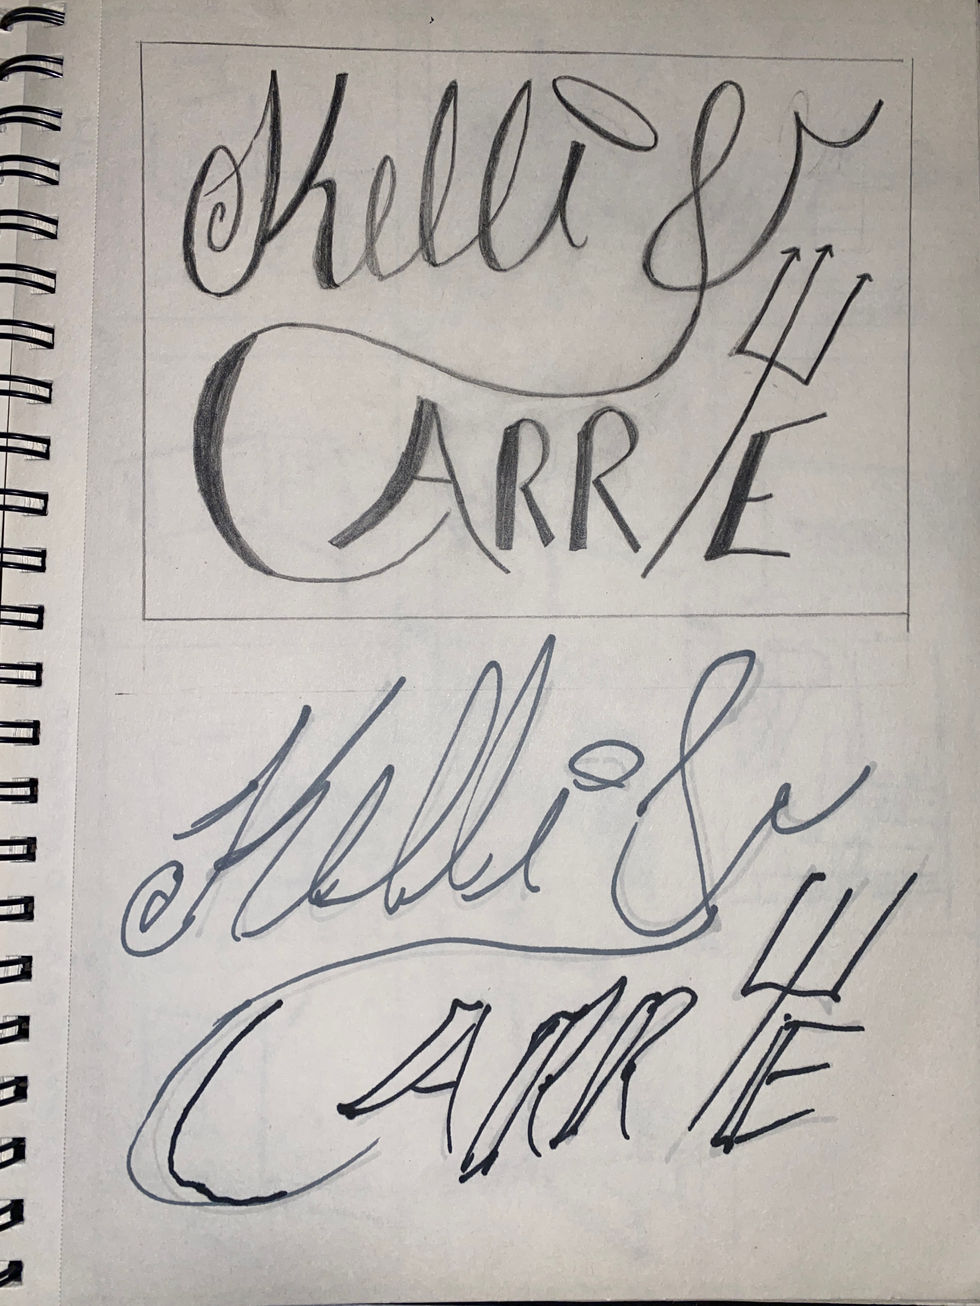 Kelli &
CARRIE
Kelli &
CARRIE